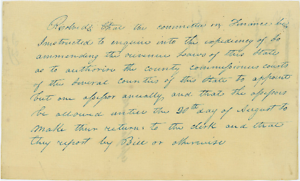 Resolved that the committee on Finance be
instructed to enquire into the expediency of so
ammending the revenue laws of this State
as to authorize the county commissioners courts
of the several counties of this State to appoint
but one assessor anually, and that the assessors
be allowed untill the 20th day of August to
make their returns to the clerk and that
they report by Bill or otherwise